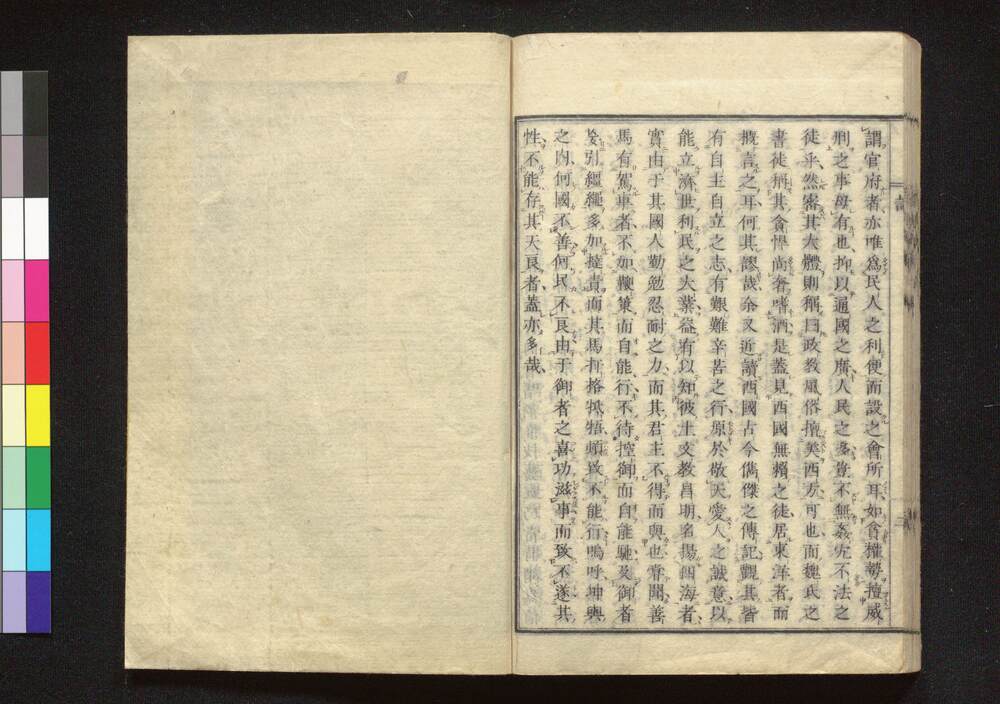 謂官府者亦唯爲民人之利便而設之會所耳如貪權勢擅威
刑之事毋有也抑以通國之廣人民之多豈不無姦宄不法之
徒乎然審其大體則稱曰政教風俗擅美西方可也而魏氏之
書徒稱其貪悍尚奢嗜酒是蓋見西國無賴之徒居東洋者而
概言之耳何其謬哉余又近讀西國古今儁傑之傳記觀其皆
有自主自立之志有艱難辛苦之行原於敬天愛人之誠意以
能立濟世利民之大業益有以知彼土文教昌明名揚四海者
實由于其國人勤勉忍耐之力而其君主不得而與也嘗聞善
馬有駕車者不加鞭策而自能行不待控御而自能馳及御者
妄引繮繩多加撻責而其馬扞格牴牾頓致不能行嗚呼坤輿
之内何國不善何民不良由于御者之喜功滋事而致不遂其
性不能存其天良者蓋亦多哉